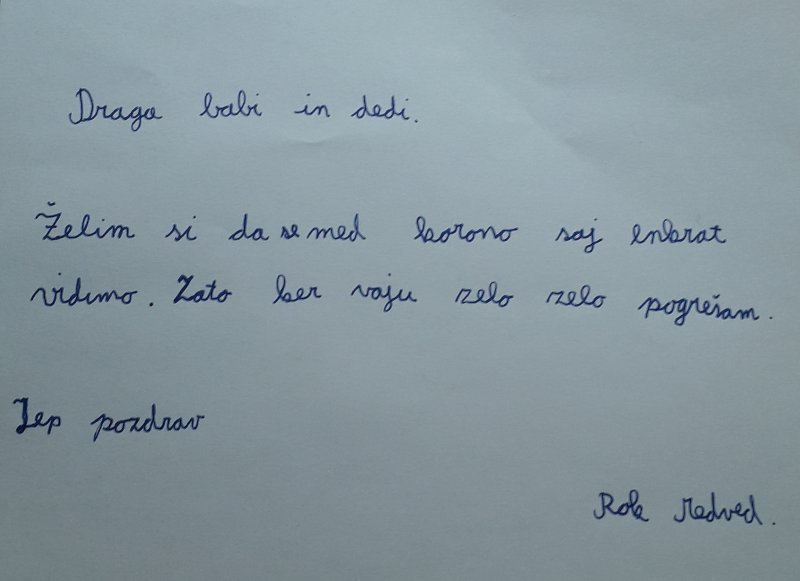 Draga babi in dedi.
Želim si da se med korono saj enkrat
vidimo. Zato ker vaju zelo zelo pogrešam.
Lep pozdrav
Rok Medved.